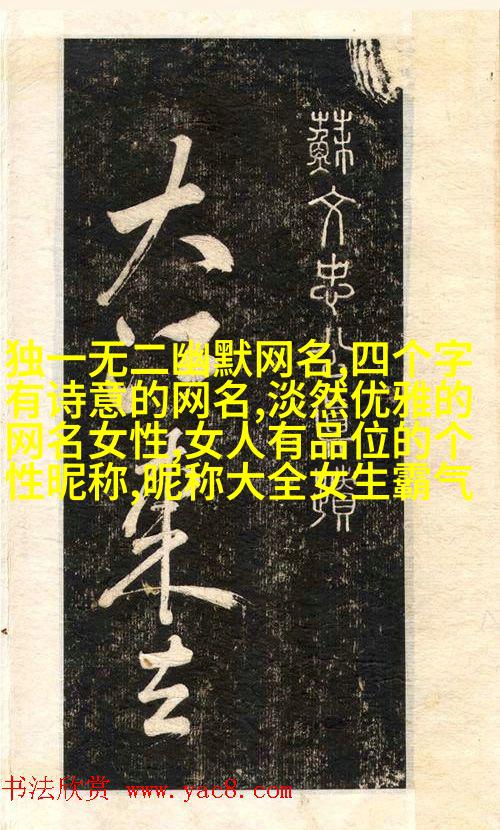 蘇文忠公蹟
大江東去
独一无二幽默网名,四个字
有诗意的网名,淡然优雅的
网名女性,女人有品位的个
性昵称,昵称大全女生霸气
书法欣赏 www.yac8.com